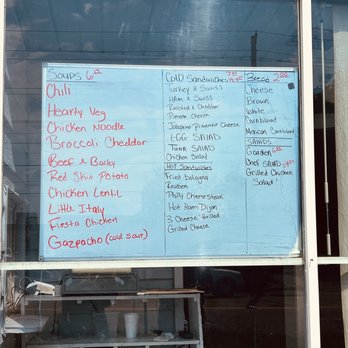 Soups 6
Chili
Hearty Veg
Chicken Noodle
Broccoli Cheddar
Beef & Barley
Red Skin Potato
Chicken Lentil
Little Italy
Fiesta Chicken
Gazpacho (cold soup)
COLD Sandwiches
Turkey & Swiss
Ham & Swiss
Roasted & Cheddar
Pimento Cheese
Jalapeno Pimento Cheese
EGG SALAD
Tuna SALAD
Chicken Salad
Hot Sandwiches
Fried bologna
Reuben
Philly Cheesesteak
Hot Ham Dijon
3 Cheese Grilled
Grilled Cheese
Bread 2.00
Cheese
Brown
White
Cornbread
Mexican Cornbread
SALADS
Garden
Chef SALAD
Grilled Chicken
Salad